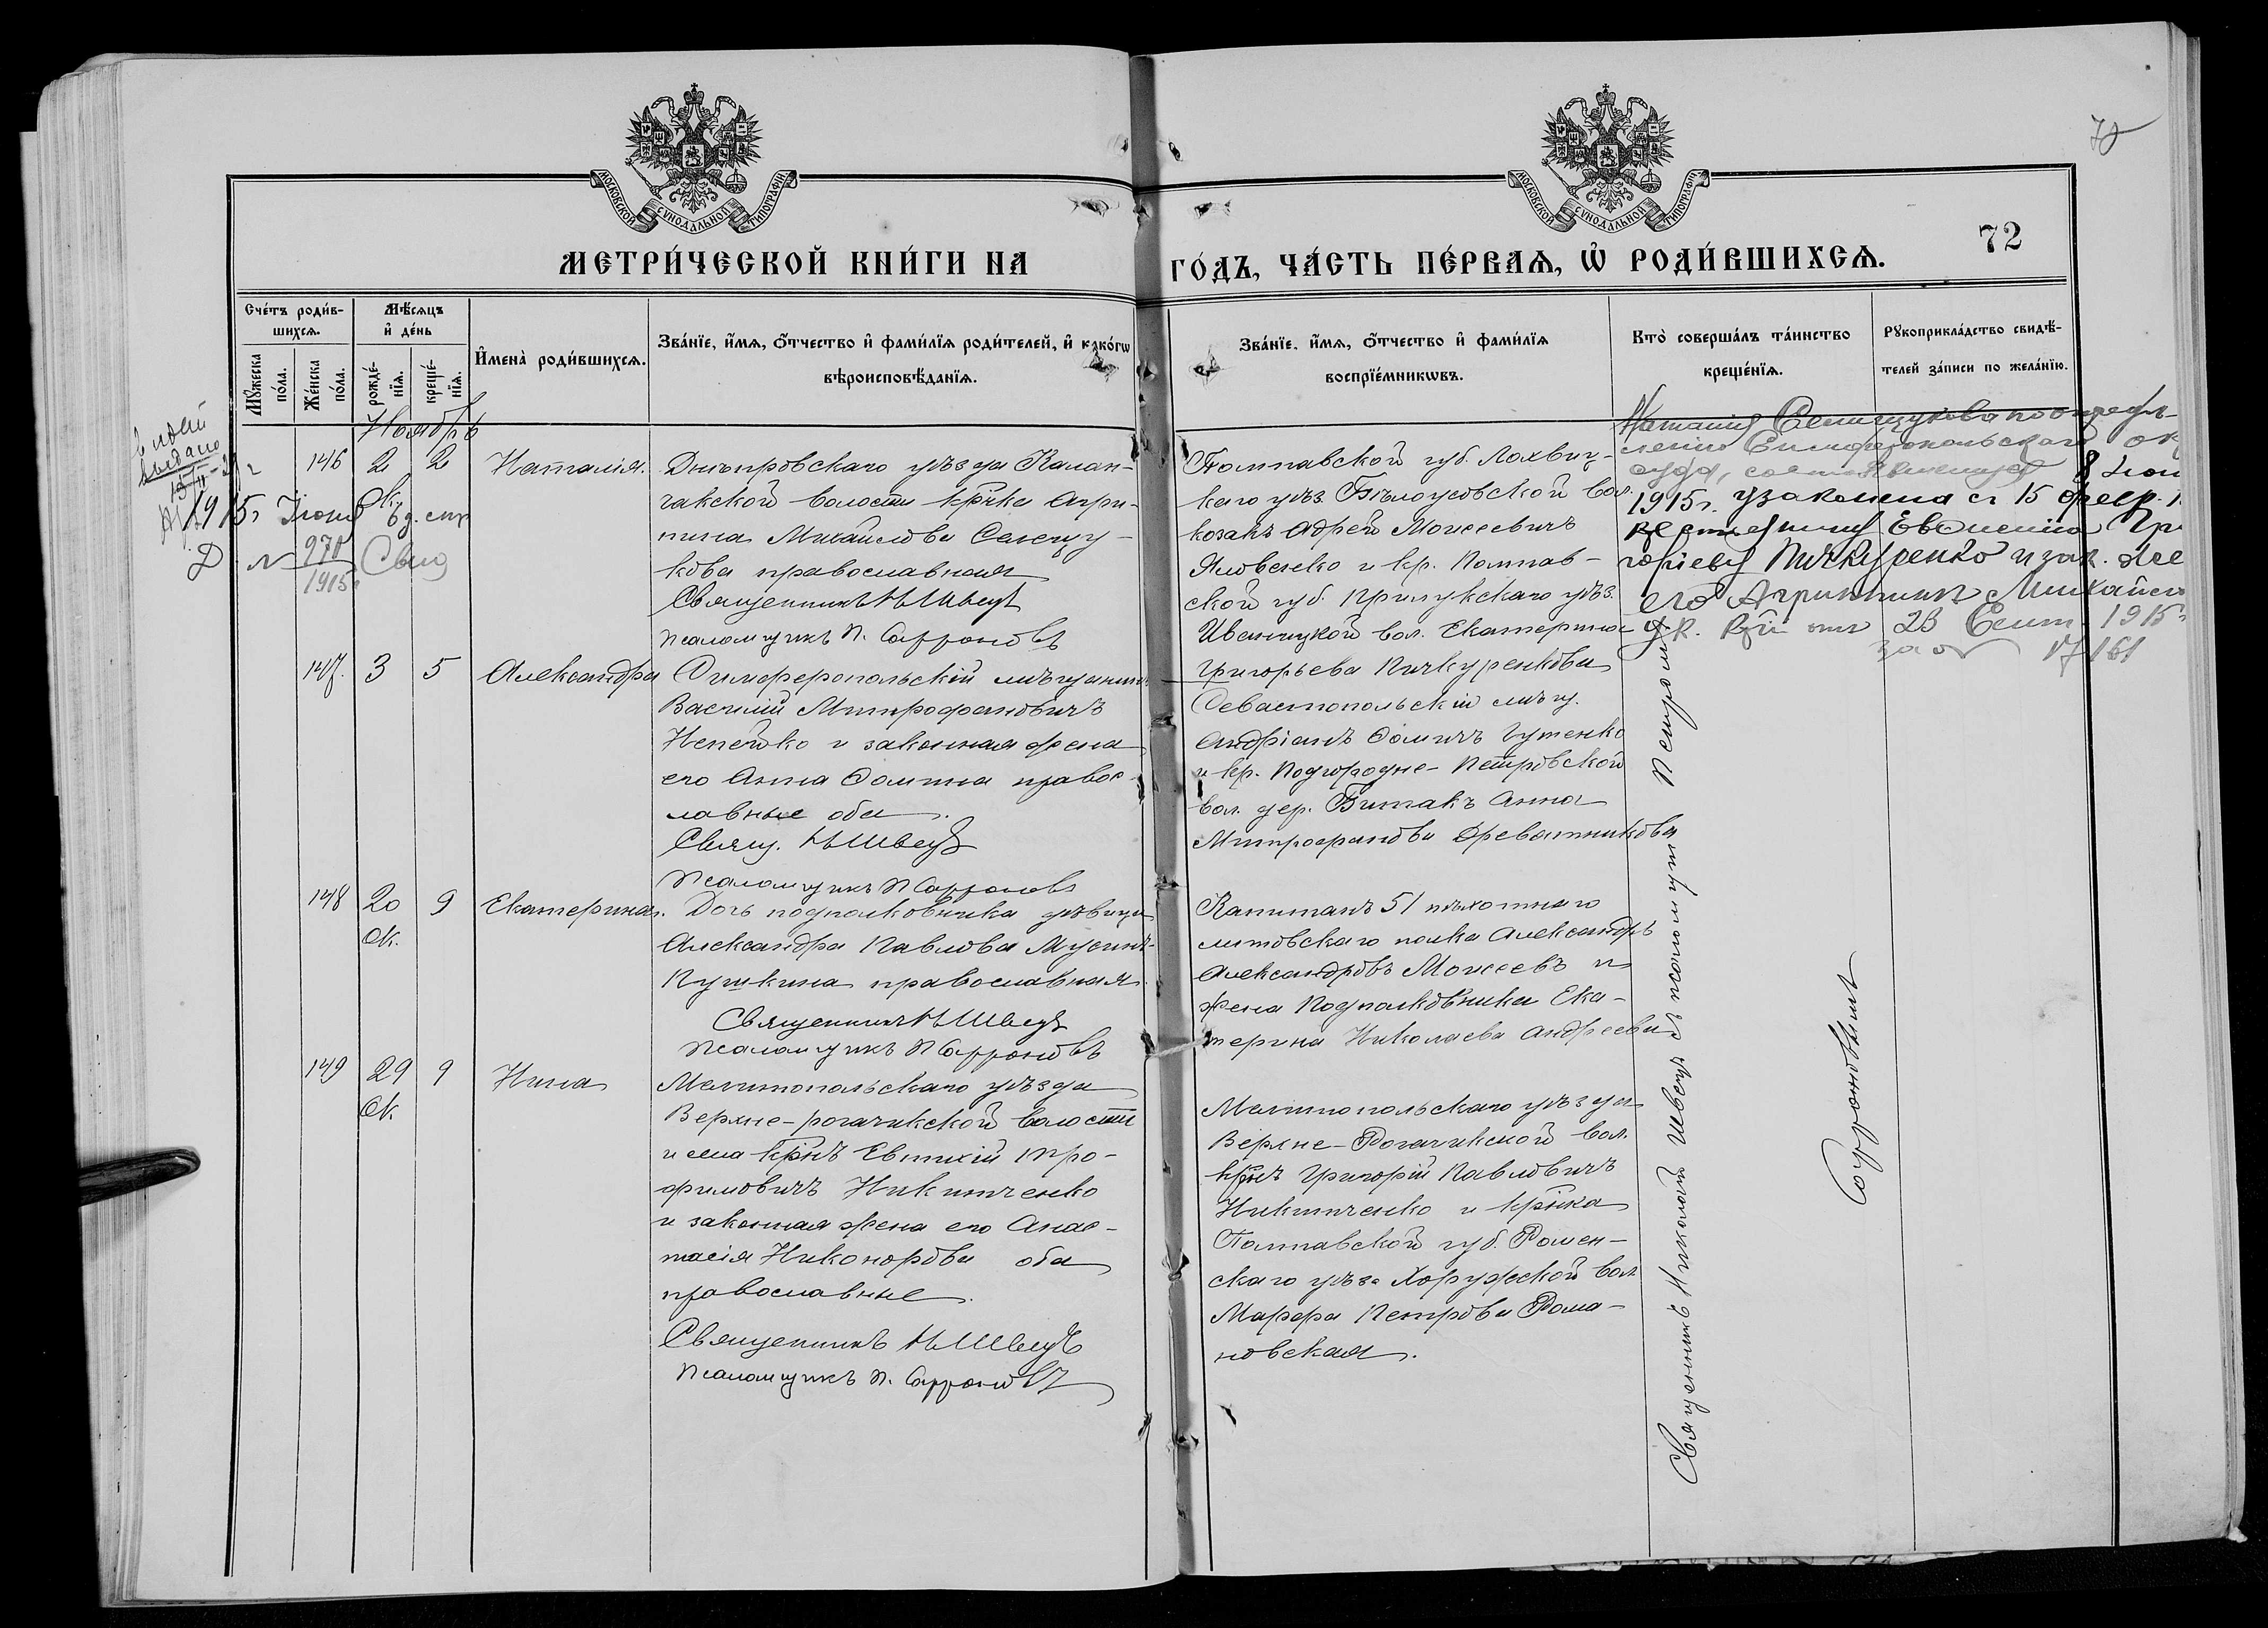 МОСКОВСКОЙ СѴНОДАЛЬНОЙ ТИПОГРАФІИ
МОСКОВСКОЙ СѴНОДАЛЬНОЙ ТИПОГРАФІИ
72
МЕТРИ́ЧЕСКОЙ КНИ́ГИ НА ГО́ДЪ, ЧА́СТЬ ПЕ́РВАѦ, Ѡ҆ РОДИ́ВШИХСѦ.
Сче́тъ роди́в-
шихсѧ.
Мꙋ́жеска по́ла.
Же́нска по́ла.
Мѣ́сѧцъ
и҆ де́нь
рожде́-нїѧ.
креще́-нїѧ.
И҆мена̀ роди́вшихсѧ.
Зва́нїе, и҆́мѧ, ѻ҆́тчество и҆ фами́лїѧ роди́телей, и҆ како́гѡ
вѣроисповѣ́данїѧ.
Зва́нїе, и҆́мѧ, ѻ҆́тчество и҆ фами́лїѧ
воспрїе́мникѡвъ.
Кто̀ соверша́лъ та́инство
креще́нїѧ.
Рꙋкоприкла́дство свидѣ́-
телей за́писи по жела́нїю.
Ноябрь
146 2 2 Наталія.
Днѣпровскаго уѣзда Калан-
чакской волости крѣка Агри-
пина Михайлова Селещу-
кова православная
Священникъ Н Швецъ
Псаломщикъ П. Сафроновъ
Полтавской губ. Лохвиц-
каго уѣз. Бѣлоусовской вол.
козакъ Адрей Моисеевичъ
Яловенко и кр. Полтав-
ской губ. Прилукскаго уѣз.
Иваницкой вол. Екатерина
Григорьева Пичкуренкова
Наталія Селещукова по опредѣ-
ленію Симферопольскаго ок
суда, состоявшемуся 8 Іюн
1915 г. узаконена съ 15 февр. 1
Григоріеву Пичкуренко и зак. же
его Агриппинѣ Михайло
23 Сент. 1915 г
за № 17161
выдано
1915 г Іюня
№ 970
1915
147. 3 5 Александра
Симферопольскій мѣщанинъ
Василій Митрофановичъ
Непейко и законная жена
его Анна Фомина правос-
лавные оба.
Свящ. Н Швецъ
Псаломщикъ П Сафроновъ
Севастопольскій мѣщ.
Андріанъ Фомичъ Гутенко
и кр. Подгородне-Петровской
вол. дер. Битакъ Анна
Митрофанова Древатникова
148 20 9 Екатерина.
Ок.
Дочь подполковника дѣвица
Александра Павлова Мусинъ-
Пушкина православная.
Священникъ Н Швецъ
Псаломщикъ П Сафроновъ
Капитанъ 51 пѣхотнаго
литовскаго полка Александръ
Александровъ Моисеевъ и
жена Подполковника Ека-
терина Николаева Андреева
149 29 9 Нина
Ок
Мелитопольскаго уѣзда
Верхне-рогачикской волости
и села крнъ Евтихій Тро-
фимовичъ Никитченко
и законная жена его Анас-
тасія Никонорова оба
православные.
Священникъ Н Швецъ
Псаломщикъ П. Сафроновъ
Мелитопольскаго уѣзда
Верхне-Рогачикской вол.
крнъ Григорій Павловичъ
Никитченко и крнка
Полтавской губ. Ромен-
скаго уѣзда Хоружской вол.
Марфа Петрова Рома-
новская.
Священникъ Николай Швецъ съ псаломщ. Петромъ
Сафроновымъ